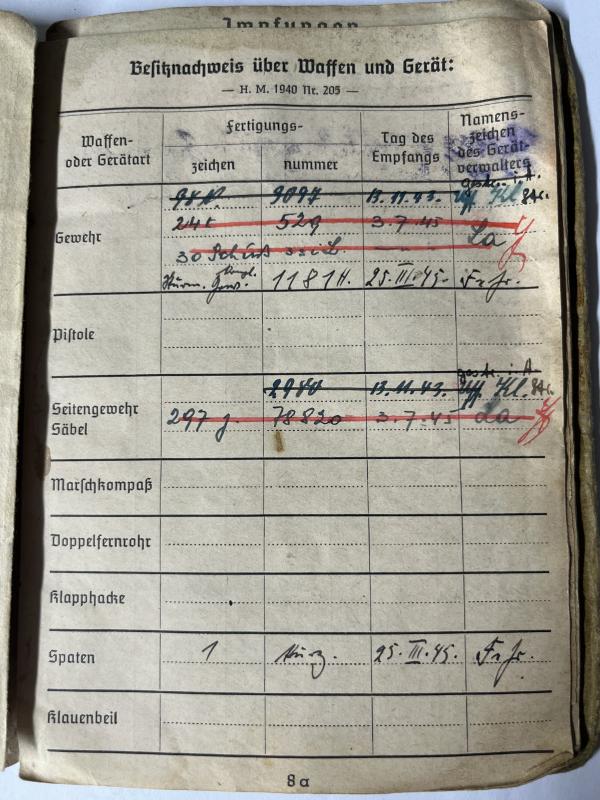 Impfungen
Besitznachweis über Waffen und Gerät:
— H. M. 1940 Nr. 205 —
Waffen-
oder Gerätart
Fertigungs-
zeichen
nummer
Tag des
Empfangs
Namens-
zeichen
des Gerät-
verwalters
gestr. i. A.
9097 13.11.43. Kl.
Gewehr
24t 529 3.7.45 La
30 Schuss
Sturm. Gew. 1181 H. 25.III.45.
Pistole
gestr. i. A.
2980 13.11.43. Kl.
Seitengewehr
Säbel
297 j. 78820 3.7.45 La
Marschkompaß
Doppelfernrohr
Klapphacke
Spaten 1 kurz. 25.III.45.
Klauenbeil
8a